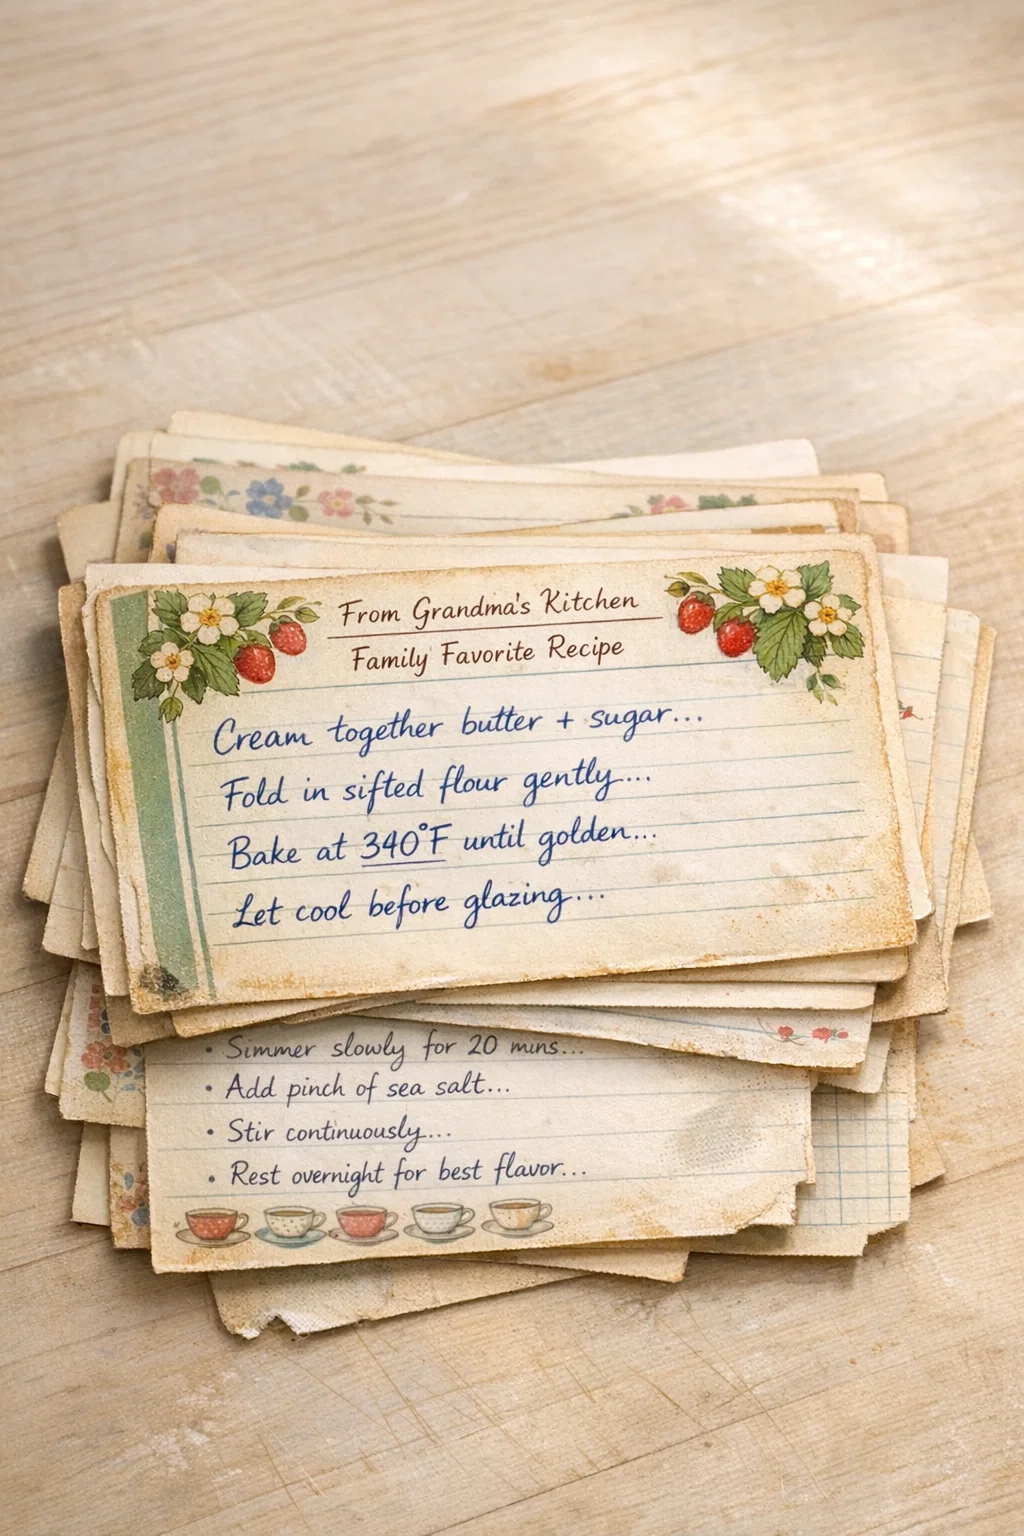 From Grandma's Kitchen
Family Favorite Recipe
Cream together butter + sugar...
Fold in sifted flour gently...
Bake at 340°F until golden...
Let cool before glazing...
• Simmer slowly for 20 mins...
• Add pinch of sea salt...
• Stir continuously...
• Rest overnight for best flavor...